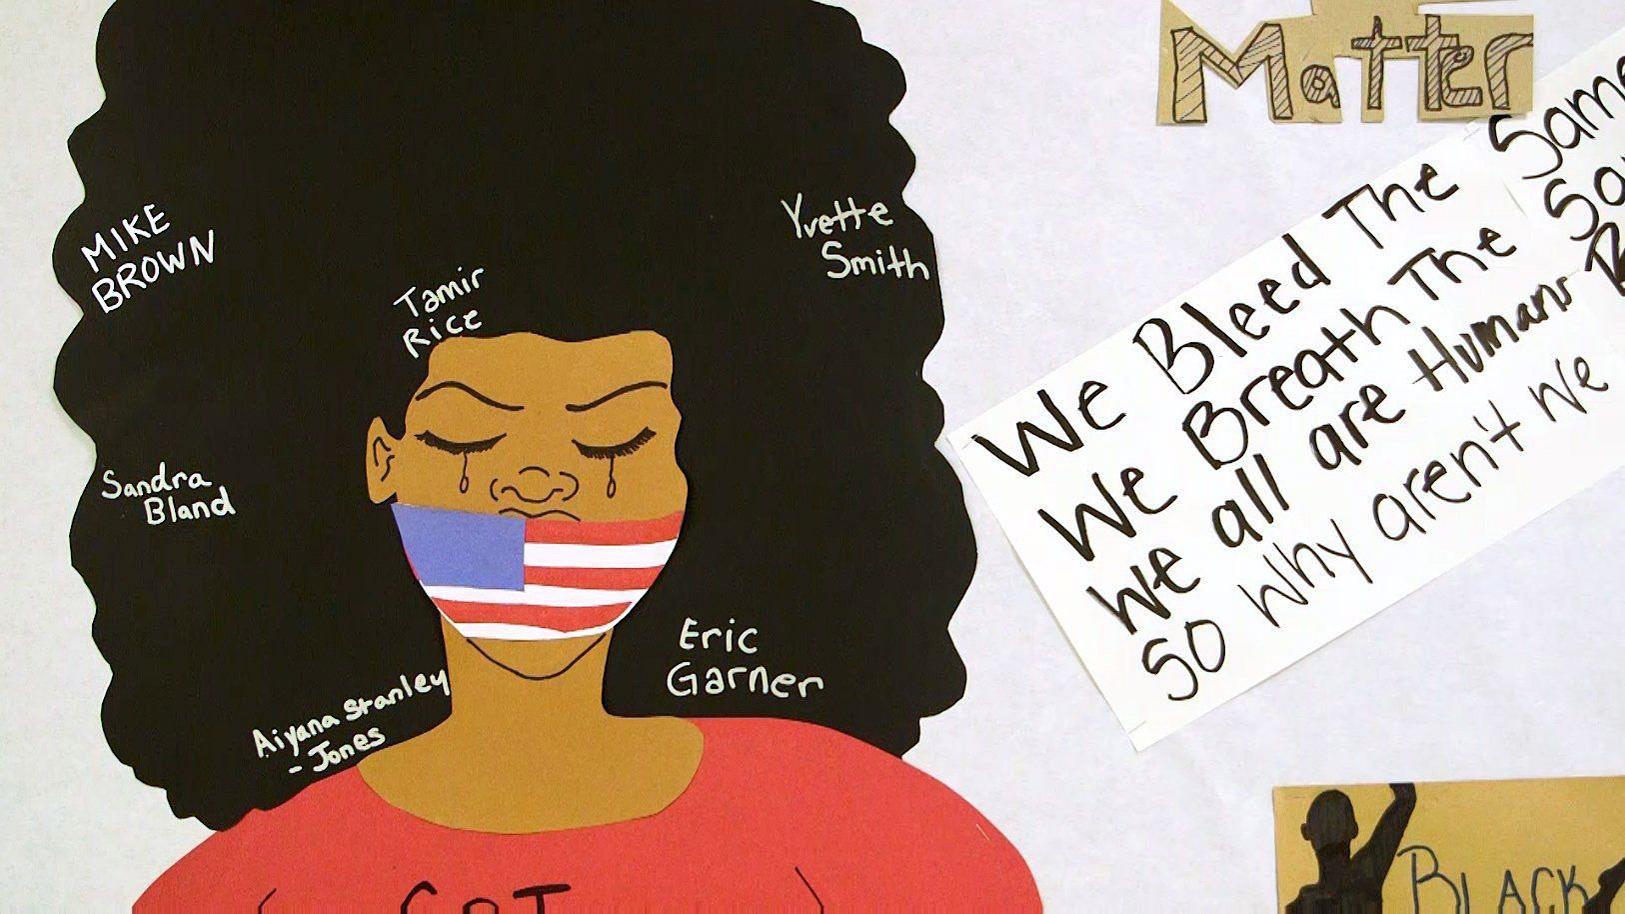 Matter
MIKE
BROWN
Yvette
Smith
Tamir
Rice
Sandra
Bland
Eric
Garner
Aiyana Stanley
- Jones
We Bleed The Same
We Breath The
We all are Humans
So Why aren't We
BLACK